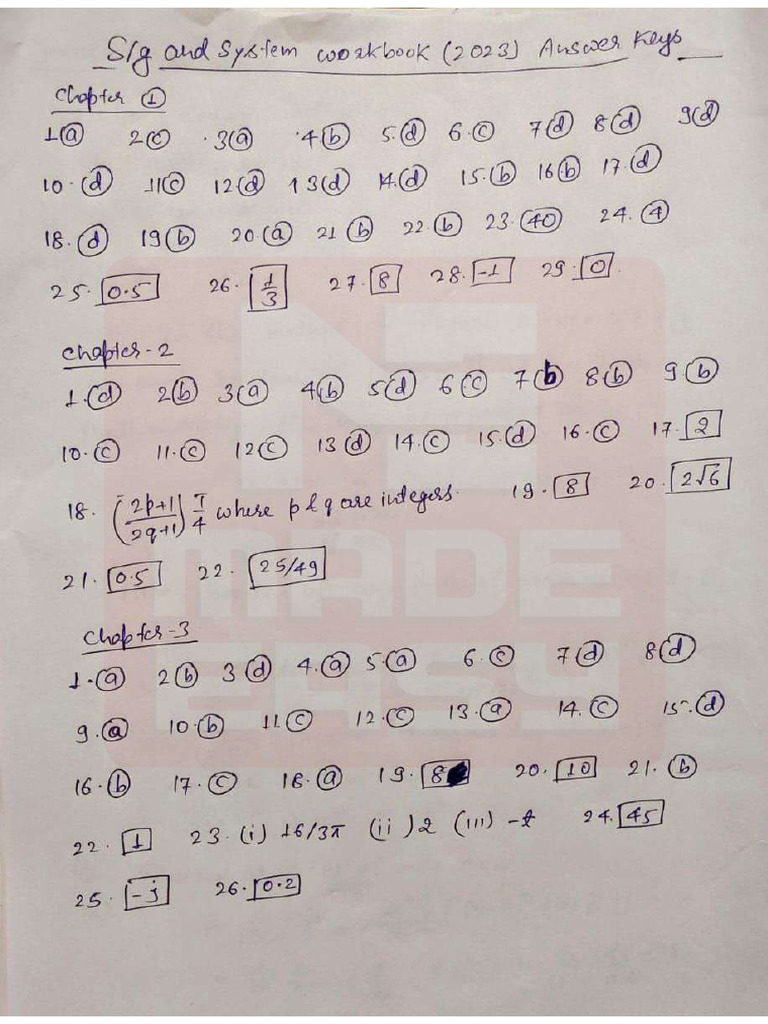 S/g and System workbook (2023) Answer Keys
Chapter ①
1 (a) 2 (c) 3 (a) 4 (b) 5. (d) 6. (c) 7 (d) 8 (d) 9 (d)
10. (d) 11 (c) 12 (d) 13 (d) 14. (d) 15. (b) 16 (b) 17. (d)
18. (d) 19 (b) 20 (a) 21 (b) 22. (b) 23. (40) 24. (4)
25. 0.5 26. 1/3 27. 8 28. -1 29. 0
Chapter-2
1. (d) 2 (b) 3 (a) 4 (b) 5 (d) 6 (c) 7 (b) 8 (b) 9 (b)
10. (c) 11. (c) 12 (c) 13 (d) 14. (c) 15. (d) 16. (c) 17. 2
18. (2p+1/2q+1) π/4 where p & q are integers. 19. 8 20. 2√6
21. 0.5 22. 25/49
Chapter-3
1. (a) 2 (b) 3 (d) 4. (a) 5. (a) 6. (c) 7 (d) 8 (d)
9. (a) 10. (b) 11 (c) 12. (c) 13. (a) 14. (c) 15. (d)
16. (b) 17. (c) 18. (a) 19. 8 20. 10 21. (b)
22. 1 23. (i) 16/3π (ii) 2 (iii) 24. 45
25. -j 26. 0.2
MADE
EASY